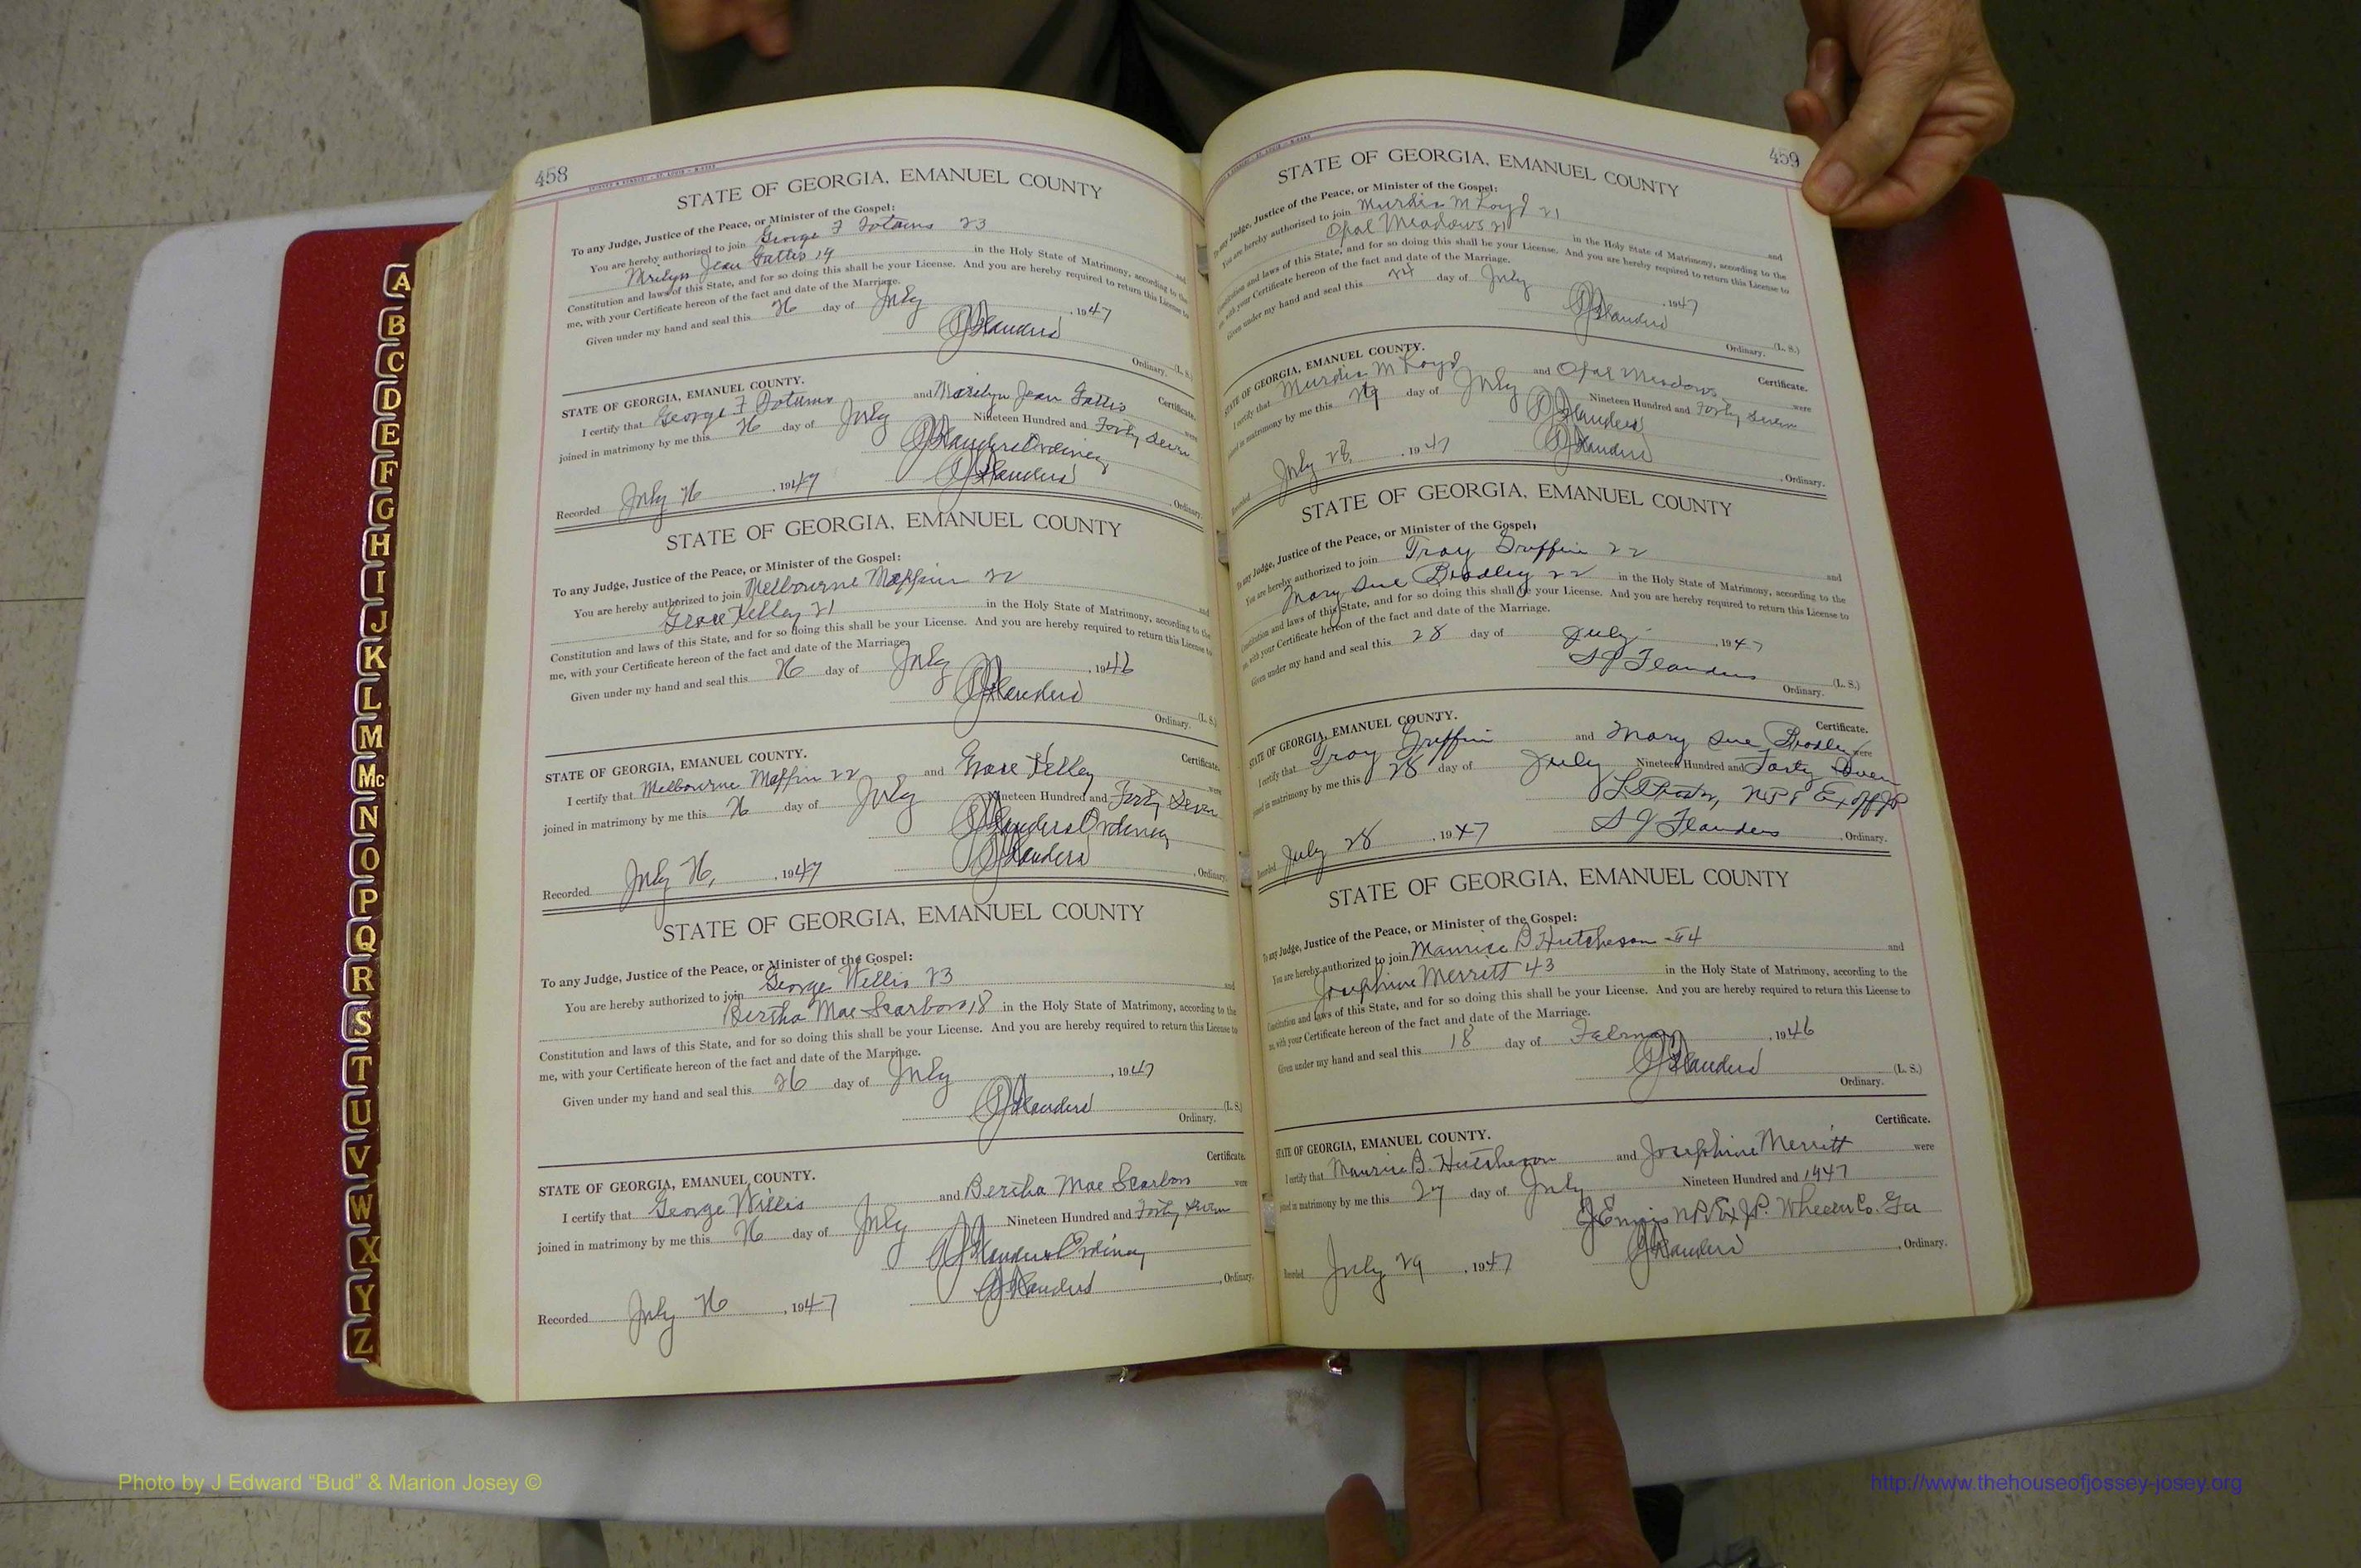 458
STATE OF GEORGIA, EMANUEL COUNTY
To any Judge, Justice of the Peace, or Minister of the Gospel:
You are hereby authorized to join George F 23
Jean Gattis 19 in the Holy State of Matrimony, according to the
Constitution and laws of this State, and for so doing this shall be your License. And you are hereby required to return this License to
me, with your Certificate hereon of the fact and date of the Marriage.
Given under my hand and seal this 26 day of July , 1947
Flanders (L. S.)
Ordinary.
STATE OF GEORGIA, EMANUEL COUNTY. Certificate.
I certify that George F and Marilyn Jean Gattis were
joined in matrimony by me this 26 day of July Nineteen Hundred and Forty Seven
Flanders Ordinary
Recorded July 26 , 1947 Flanders , Ordinary.
STATE OF GEORGIA, EMANUEL COUNTY
To any Judge, Justice of the Peace, or Minister of the Gospel:
You are hereby authorized to join Melbourne 22 and
Grace Kelley 21 in the Holy State of Matrimony, according to the
Constitution and laws of this State, and for so doing this shall be your License. And you are hereby required to return this License to
me, with your Certificate hereon of the fact and date of the Marriage.
Given under my hand and seal this 26 day of July , 1946
Flanders (L. S.)
Ordinary.
STATE OF GEORGIA, EMANUEL COUNTY. Certificate.
I certify that Melbourne 22 and Grace Kelley were
joined in matrimony by me this 26 day of July Nineteen Hundred and Forty Seven
Flanders Ordinary
Recorded July 26, , 1947 Flanders , Ordinary.
STATE OF GEORGIA, EMANUEL COUNTY
To any Judge, Justice of the Peace, or Minister of the Gospel:
You are hereby authorized to join George Willis 23 and
Bertha Mae Scarboro 18 in the Holy State of Matrimony, according to the
Constitution and laws of this State, and for so doing this shall be your License. And you are hereby required to return this License to
me, with your Certificate hereon of the fact and date of the Marriage.
Given under my hand and seal this 26 day of July , 1947
Flanders (L. S.)
Ordinary.
Certificate.
STATE OF GEORGIA, EMANUEL COUNTY.
I certify that George Willis and Bertha Mae Scarboro were
joined in matrimony by me this 26 day of July Nineteen Hundred and Forty Seven
Flanders Ordinary
Recorded July 26 , 1947 Flanders , Ordinary.
459
STATE OF GEORGIA, EMANUEL COUNTY
To any Judge, Justice of the Peace, or Minister of the Gospel:
You are hereby authorized to join M Loyd 21 and
Opal Meadows 21 in the Holy State of Matrimony, according to the
Constitution and laws of this State, and for so doing this shall be your License. And you are hereby required to return this License to
me, with your Certificate hereon of the fact and date of the Marriage.
Given under my hand and seal this day of July , 1947
Flanders (L. S.)
Ordinary.
STATE OF GEORGIA, EMANUEL COUNTY. Certificate.
I certify that M Loyd and Opal Meadows were
joined in matrimony by me this day of July Nineteen Hundred and Forty Seven
Flanders
Recorded July 28, , 1947 Flanders , Ordinary.
STATE OF GEORGIA, EMANUEL COUNTY
To any Judge, Justice of the Peace, or Minister of the Gospel:
You are hereby authorized to join Troy Griffin 22 and
Mary Sue Bradley 22 in the Holy State of Matrimony, according to the
Constitution and laws of this State, and for so doing this shall be your License. And you are hereby required to return this License to
me, with your Certificate hereon of the fact and date of the Marriage.
Given under my hand and seal this 28 day of July , 1947
S J Flanders (L. S.)
Ordinary.
STATE OF GEORGIA, EMANUEL COUNTY. Certificate.
I certify that Troy Griffin and Mary Sue Bradley were
joined in matrimony by me this 28 day of July Nineteen Hundred and Forty Seven
Recorded July 28 , 1947 S J Flanders , Ordinary.
STATE OF GEORGIA, EMANUEL COUNTY
To any Judge, Justice of the Peace, or Minister of the Gospel:
You are hereby authorized to join Maurice B Hutcheson and
Josephine Merritt 43 in the Holy State of Matrimony, according to the
Constitution and laws of this State, and for so doing this shall be your License. And you are hereby required to return this License to
me, with your Certificate hereon of the fact and date of the Marriage.
Given under my hand and seal this 18 day of February , 1946
Flanders (L. S.)
Ordinary.
Certificate.
STATE OF GEORGIA, EMANUEL COUNTY.
I certify that Maurice B. Hutcheson and Josephine Merritt were
joined in matrimony by me this 27 day of July Nineteen Hundred and 1947
J.P. Wheeler Co. Ga
Recorded July 29 , 1947 Flanders , Ordinary.
A
B
C
D
E
F
G
H
I
J
K
L
M
Mc
N
O
P
Q
R
S
T
U
V
W
X
Y
Z
Photo by J Edward “Bud” & Marion Josey ©
http://www.thehouseofjossey-josey.org